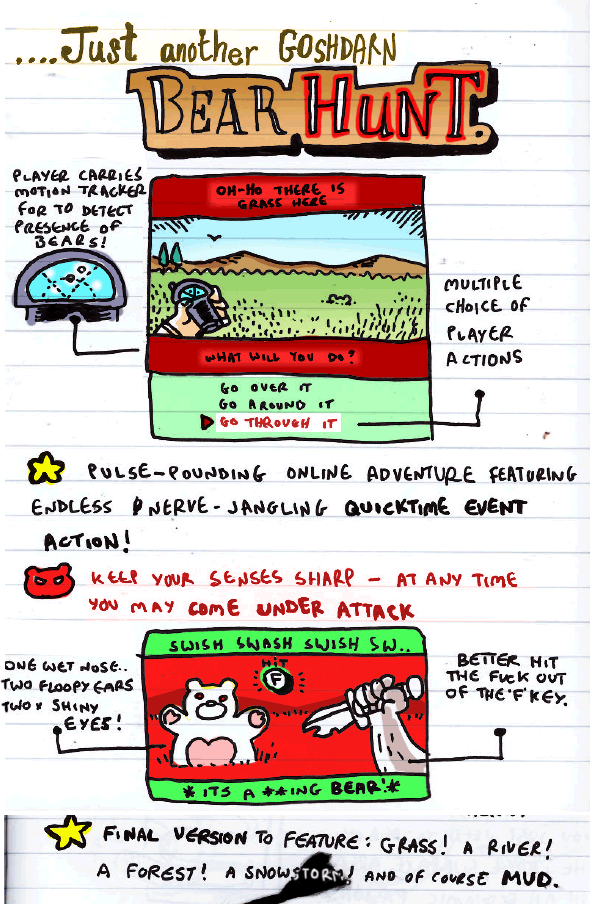 ....Just another GOSHDARN
BEAR HUNT.
PLAYER CARRIES
MOTION TRACKER
FOR TO DETECT
PRESENCE OF
BEARS!
OH-HO THERE IS
GRASS HERE
MULTIPLE
CHOICE OF
PLAYER
ACTIONS
WHAT WILL YOU DO?
GO OVER IT
GO AROUND IT
GO THROUGH IT
PULSE-POUNDING ONLINE ADVENTURE FEATURING
ENDLESS NERVE-JANGLING QUICKTIME EVENT
ACTION!
KEEP YOUR SENSES SHARP - AT ANY TIME
YOU MAY COME UNDER ATTACK
SWISH SWASH SWISH SW..
ONE WET NOSE..
TWO FLOOPY EARS
TWO x SHINY
EYES!
HIT
F
BETTER HIT
THE FUCK OUT
OF THE 'F' KEY.
*ITS A **ING BEAR!*
FINAL VERSION TO FEATURE: GRASS! A RIVER!
A FOREST! A SNOWSTORM! AND OF COURSE MUD.